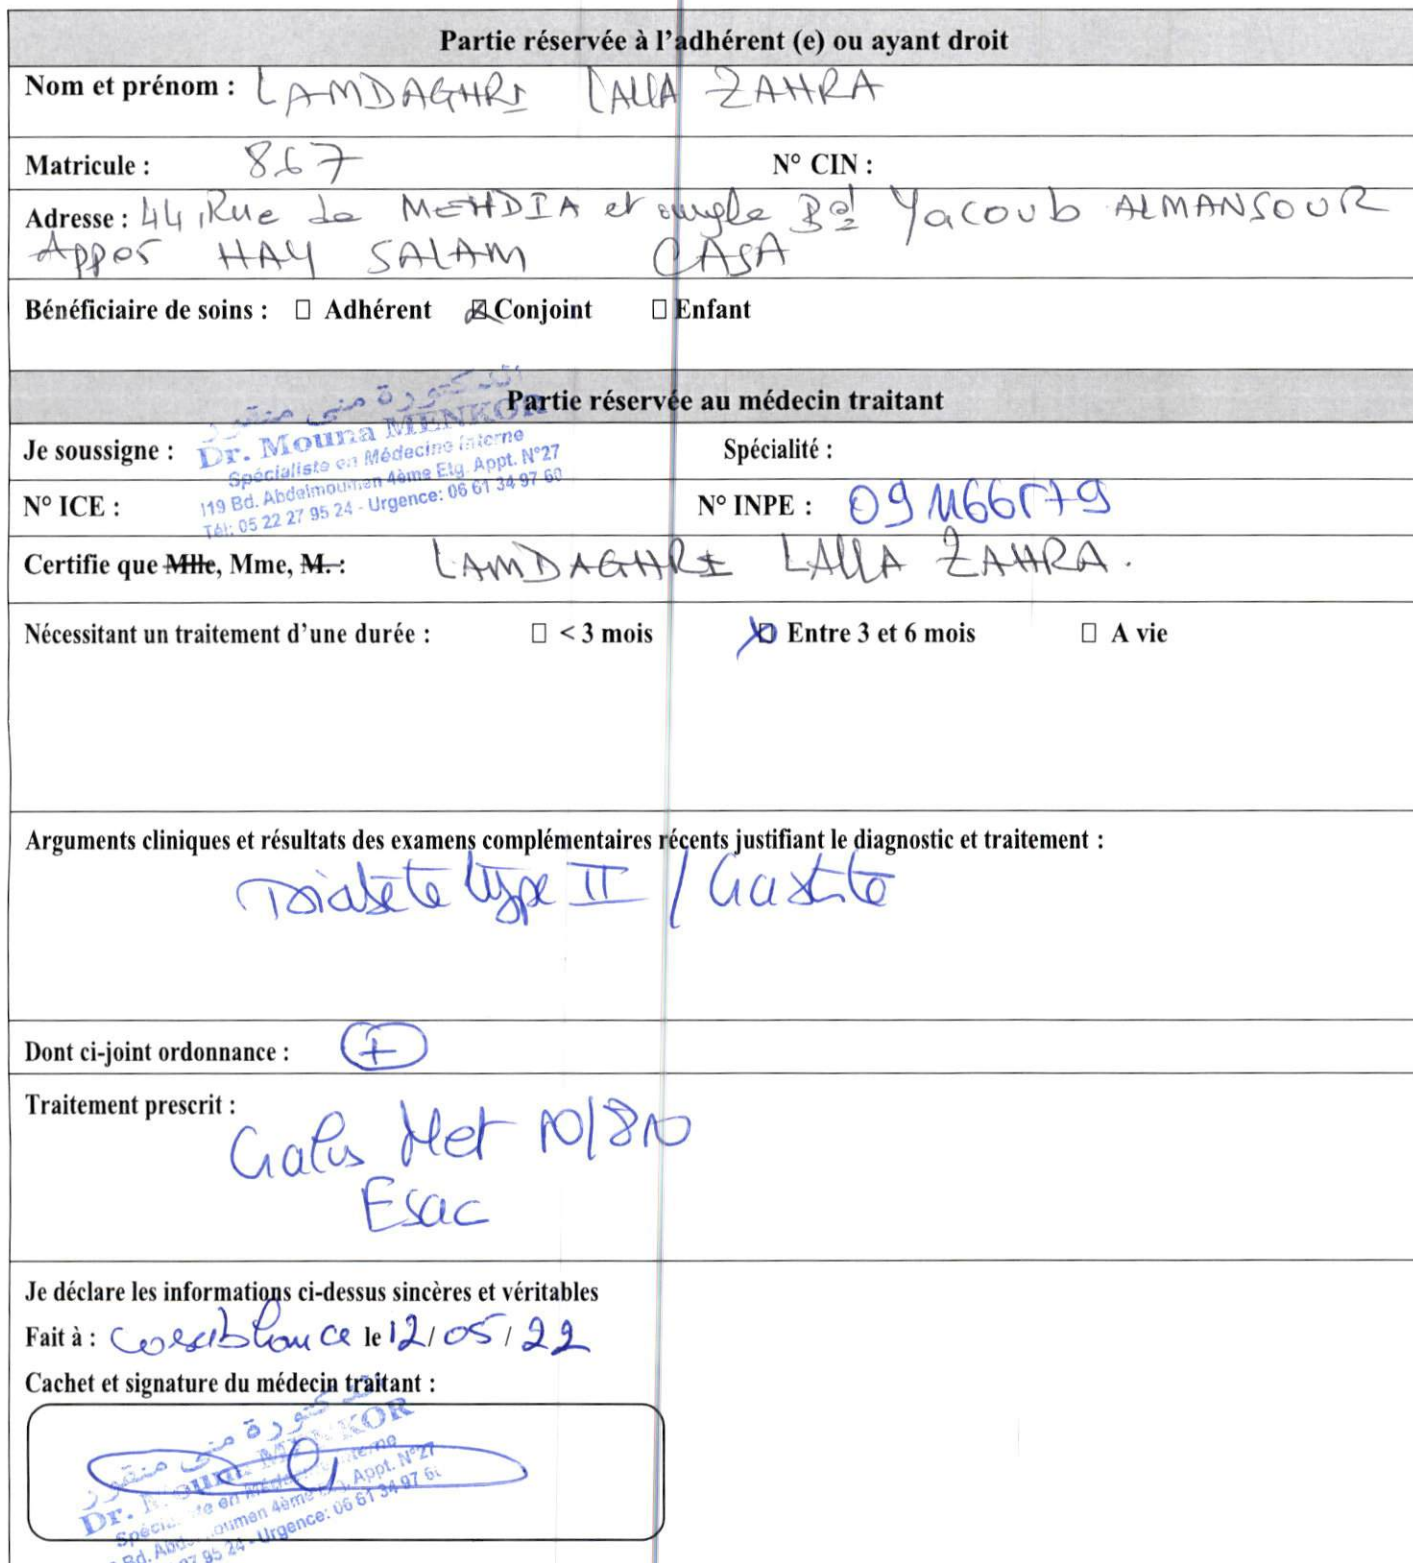 Partie réservée à l'adhérent (e) ou ayant droit
Nom et prénom : LAMDAGHRI LALLA ZAHRA
Matricule : 867 N° CIN :
Adresse : 44, Rue de MEHDIA et angle Bd Yacoub ALMANSOUR
HAY SALAM CASA
Bénéficiaire de soins : ☐ Adhérent ☒ Conjoint ☐ Enfant
الدكتورة منى منقور
Partie réservée au médecin traitant
Dr. Mouna MENKOR
Je soussigne : Spécialité :
Spécialiste en Médecine interne
119 Bd. Abdelmoumen 4ème Etg. Appt. N°27
N° ICE : N° INPE :
Tél: 05 22 27 95 24 - Urgence: 06 61 34 97 60
Certifie que Mlle, Mme, M. : LAMDAGHRI LALLA ZAHRA.
Nécessitant un traitement d'une durée : ☐ < 3 mois ☒ Entre 3 et 6 mois ☐ A vie
Arguments cliniques et résultats des examens complémentaires récents justifiant le diagnostic et traitement :
Diabète type II / Gastrite
Dont ci-joint ordonnance : +
Traitement prescrit :
Galus Met
Esac
Je déclare les informations ci-dessus sincères et véritables
Fait à : Casablanca le 12/05/22
Cachet et signature du médecin traitant :
الدكتورة منى منقور
Dr. Mouna MENKOR
en Médecine interne
4ème Appt. N°27
95 24 - Urgence: 06 61 34 97 6